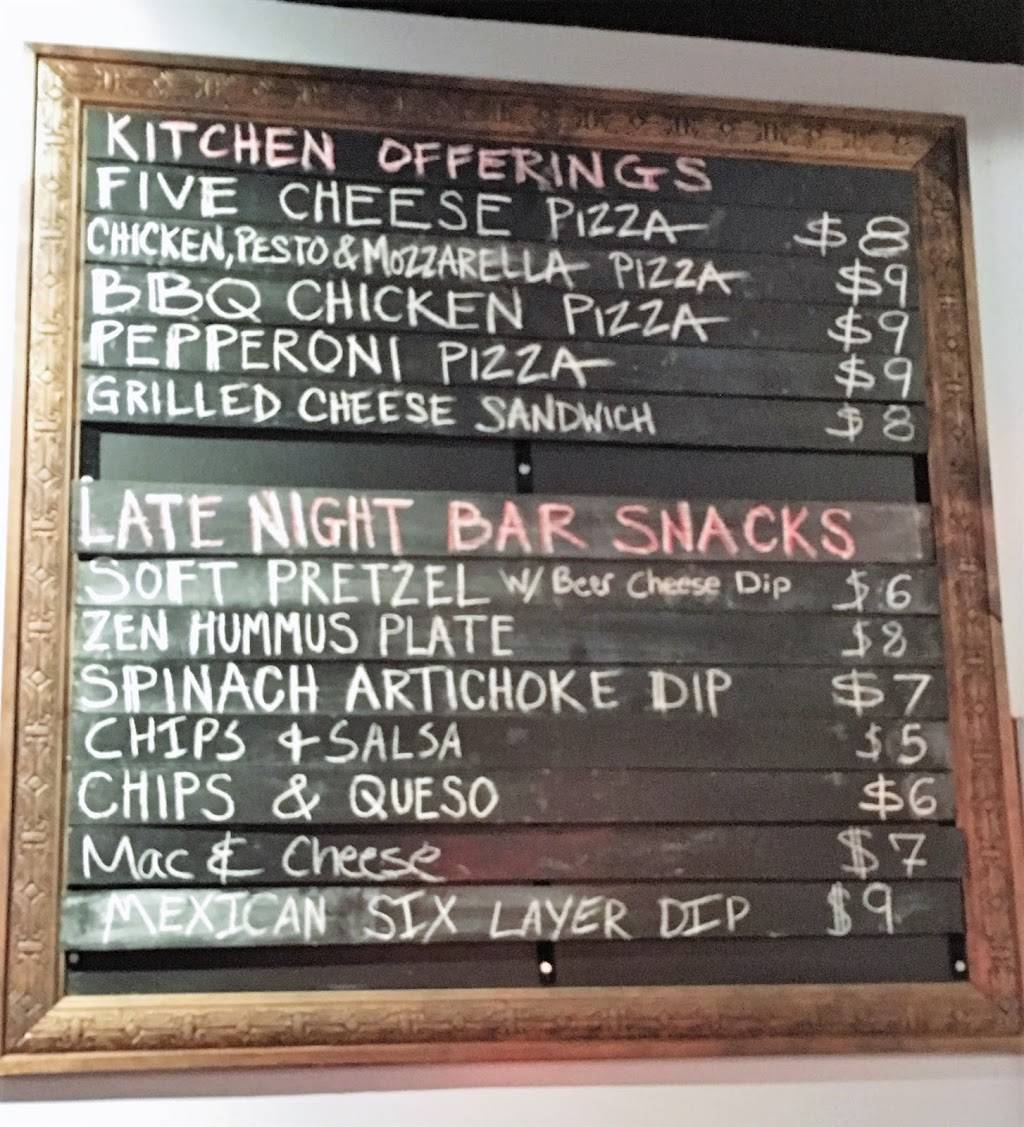 KITCHEN OFFERINGS
FIVE CHEESE PIZZA $8
CHICKEN, PESTO & MOZZARELLA PIZZA $9
BBQ CHICKEN PIZZA $9
PEPPERONI PIZZA $9
GRILLED CHEESE SANDWICH $8
LATE NIGHT BAR SNACKS
SOFT PRETZEL W/ Beer Cheese Dip $6
ZEN HUMMUS PLATE $8
SPINACH ARTICHOKE DIP $7
CHIPS & SALSA $5
CHIPS & QUESO $6
Mac & Cheese $7
MEXICAN SIX LAYER DIP $9